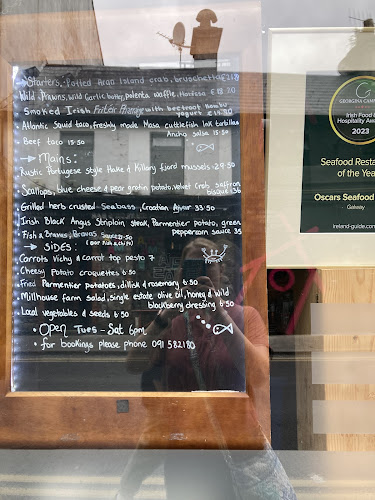 Starters, Potted Aran Island crab, bruschetta € 21.8
Wild Prawns, wild Garlic butter, polenta waffle, Harissa € 18.20
Smoked Irish with beetroot
yogurt
Atlantic Squid taco, freshly made Masa cuttlefish Ink tortillas
Ancho salsa 15.50
Beef taco 15.50
→ Mains:
Rustic Portuguese style Hake & Killary fjord mussels 29.50
Scallops, blue cheese & pear gratin potato, velvet Crab saffron
bisque 36
Grilled herb crusted Seabass, Croatian Ajvar 33.50
Irish Black Angus Striploin steak, Parmentier potato, green
peppercorn sauce 35
Fish & Bravas, Bravas Sauce 21.50
(our Fish & Chips)
→ SIDES:
Carrots Vichy & carrot top pesto 7
Cheesy Potato croquettes 6.50
Fried Parmentier potatoes, dillisk & rosemary 6.50
Millhouse farm salad, single estate olive oil, honey & wild
blackberry dressing 6.50
Local vegetables & seeds 6.50
• Open Tues - Sat 6pm
• for bookings please phone 091 582180
GEORGINA CAMP
Irish Food &
Hospitality Awa
2023
Seafood Restau
of the Yea
Oscars Seafood
Galway
ireland-guide.com